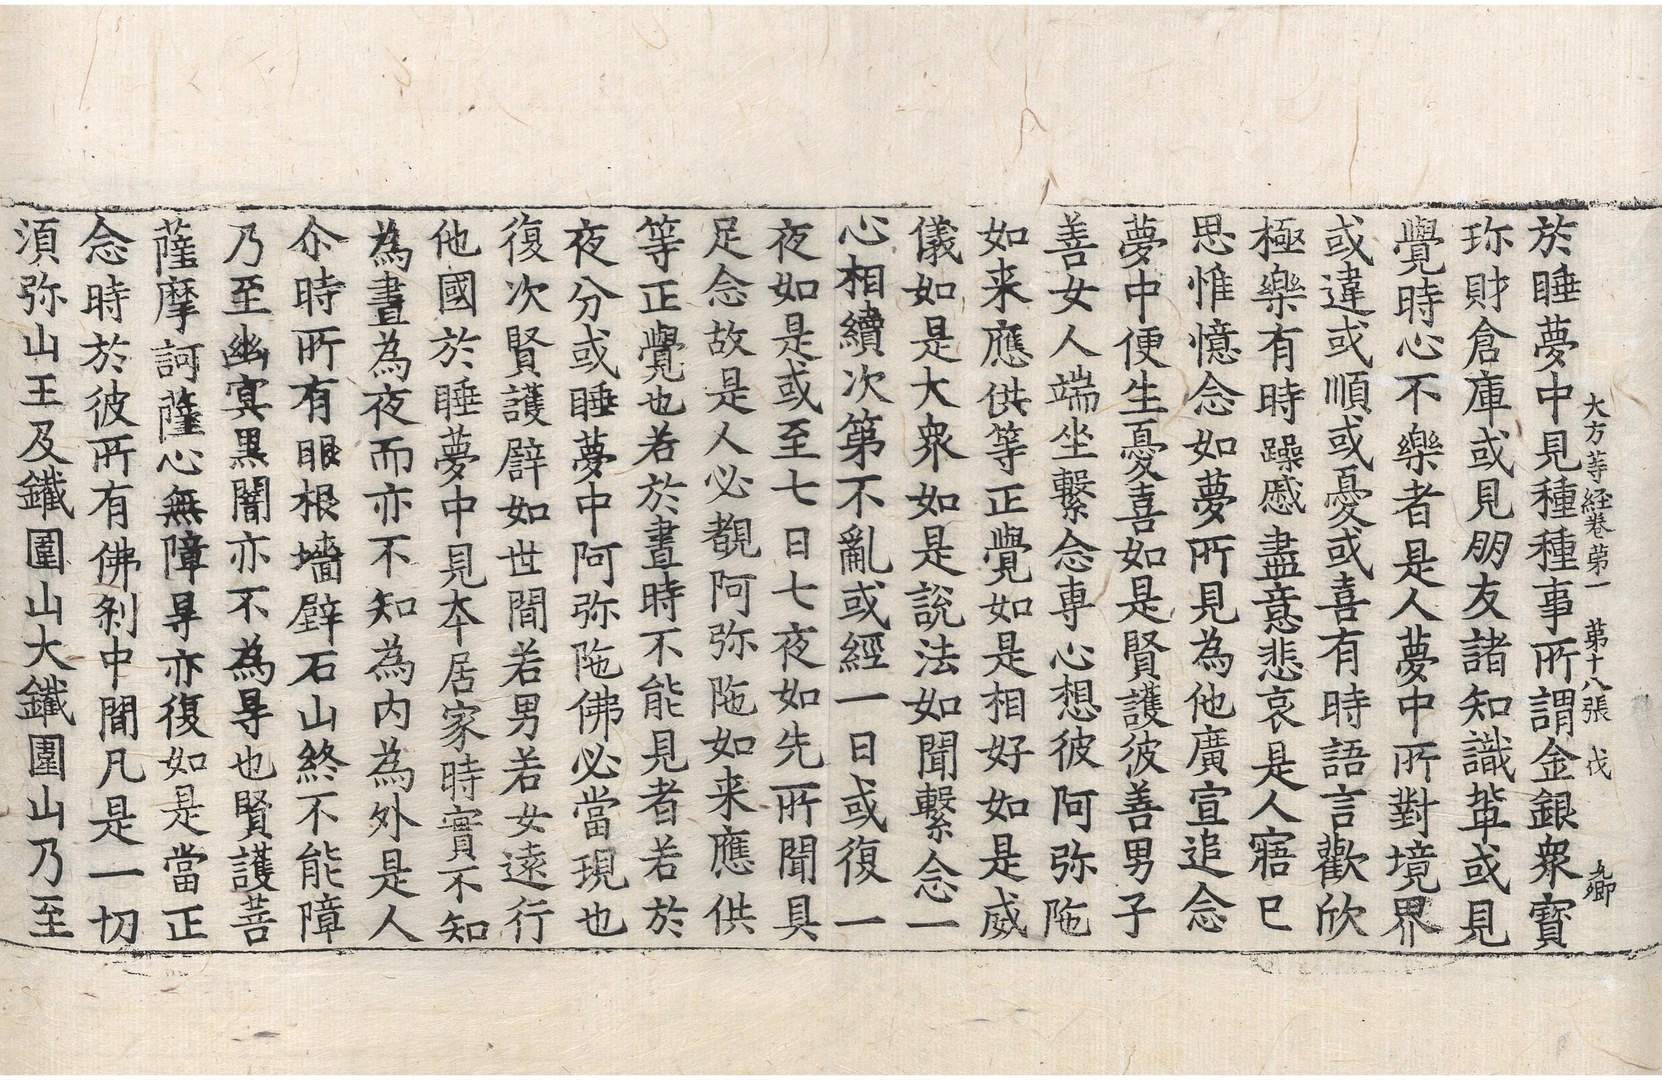 大方等経卷苐一　苐十八張　戊　九卿
於睡夢中見種種事所謂金銀衆寶
珎財倉庫或見朋友諸知識軰或見
覺時心不樂者是人夢中所對境界
或違或順或憂或喜有時語言歡欣
極樂有時躁慼盡意悲哀是人寤已
思惟憶念如夢所見為他廣宣追念
夢中便生憂喜如是賢護彼善男子
善女人端坐繫念専心想彼阿弥陁
如来應供等正覺如是相好如是威
儀如是大衆如是說法如聞繫念一
心相續次苐不亂或經一日或復一
夜如是或至七日七夜如先所聞具
足念故是人必覩阿弥陁如来應供
等正覺也若於晝時不能見者若於
夜分或睡夢中阿弥陁佛必當現也
復次賢護譬如世間若男若女遠行
他國於睡夢中見本居家時實不知
為晝為夜而亦不知為内為外是人
尒時所有眼根墻壁石山終不能障
乃至幽冥黒闇亦不為㝵也賢護菩
薩摩訶薩心無障㝵亦復如是當正
念時於彼所有佛刹中間凡是一切
湏弥山王及鐵圍山大鐵圍山乃至